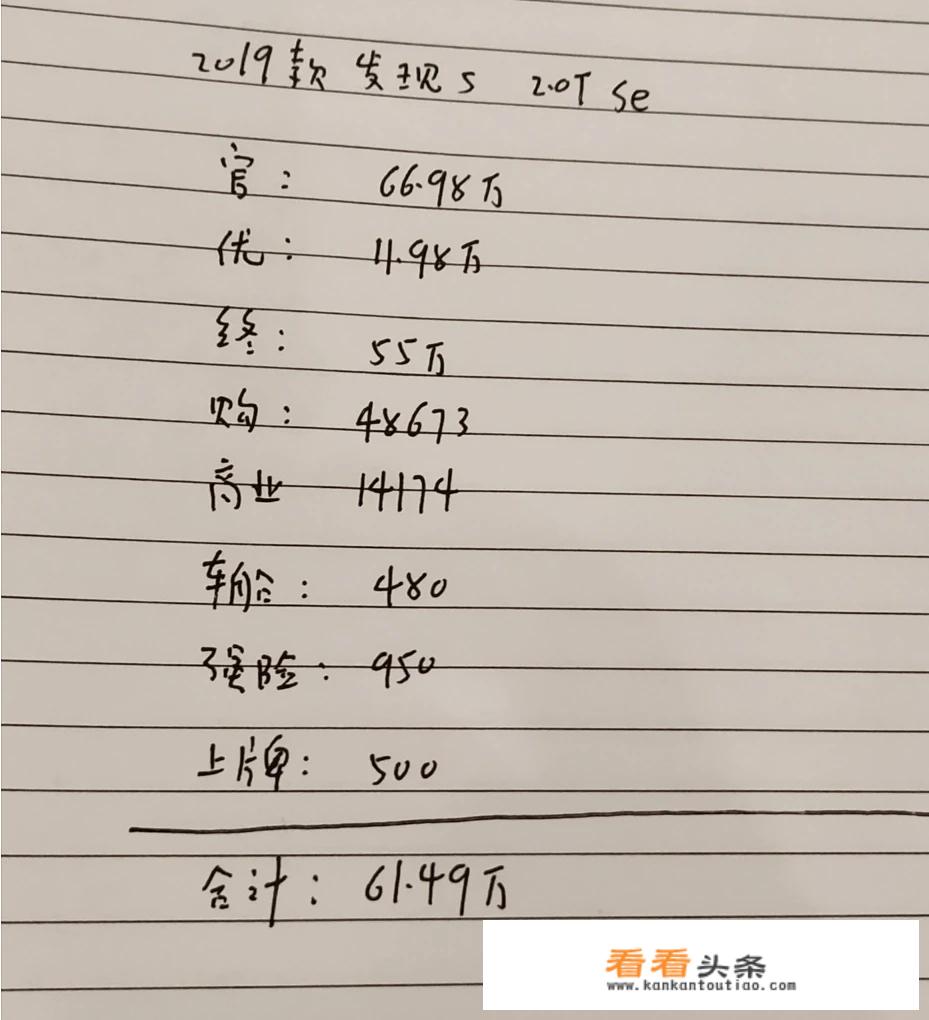 2019款 发现5 2.0T Se
官: 66.98万
优: 11.98万
终: 55万
购: 48673
商业 14174
车船: 480
强险: 950
上牌: 500
合计: 61.49万
看看头条
www.kankantoutiao.com